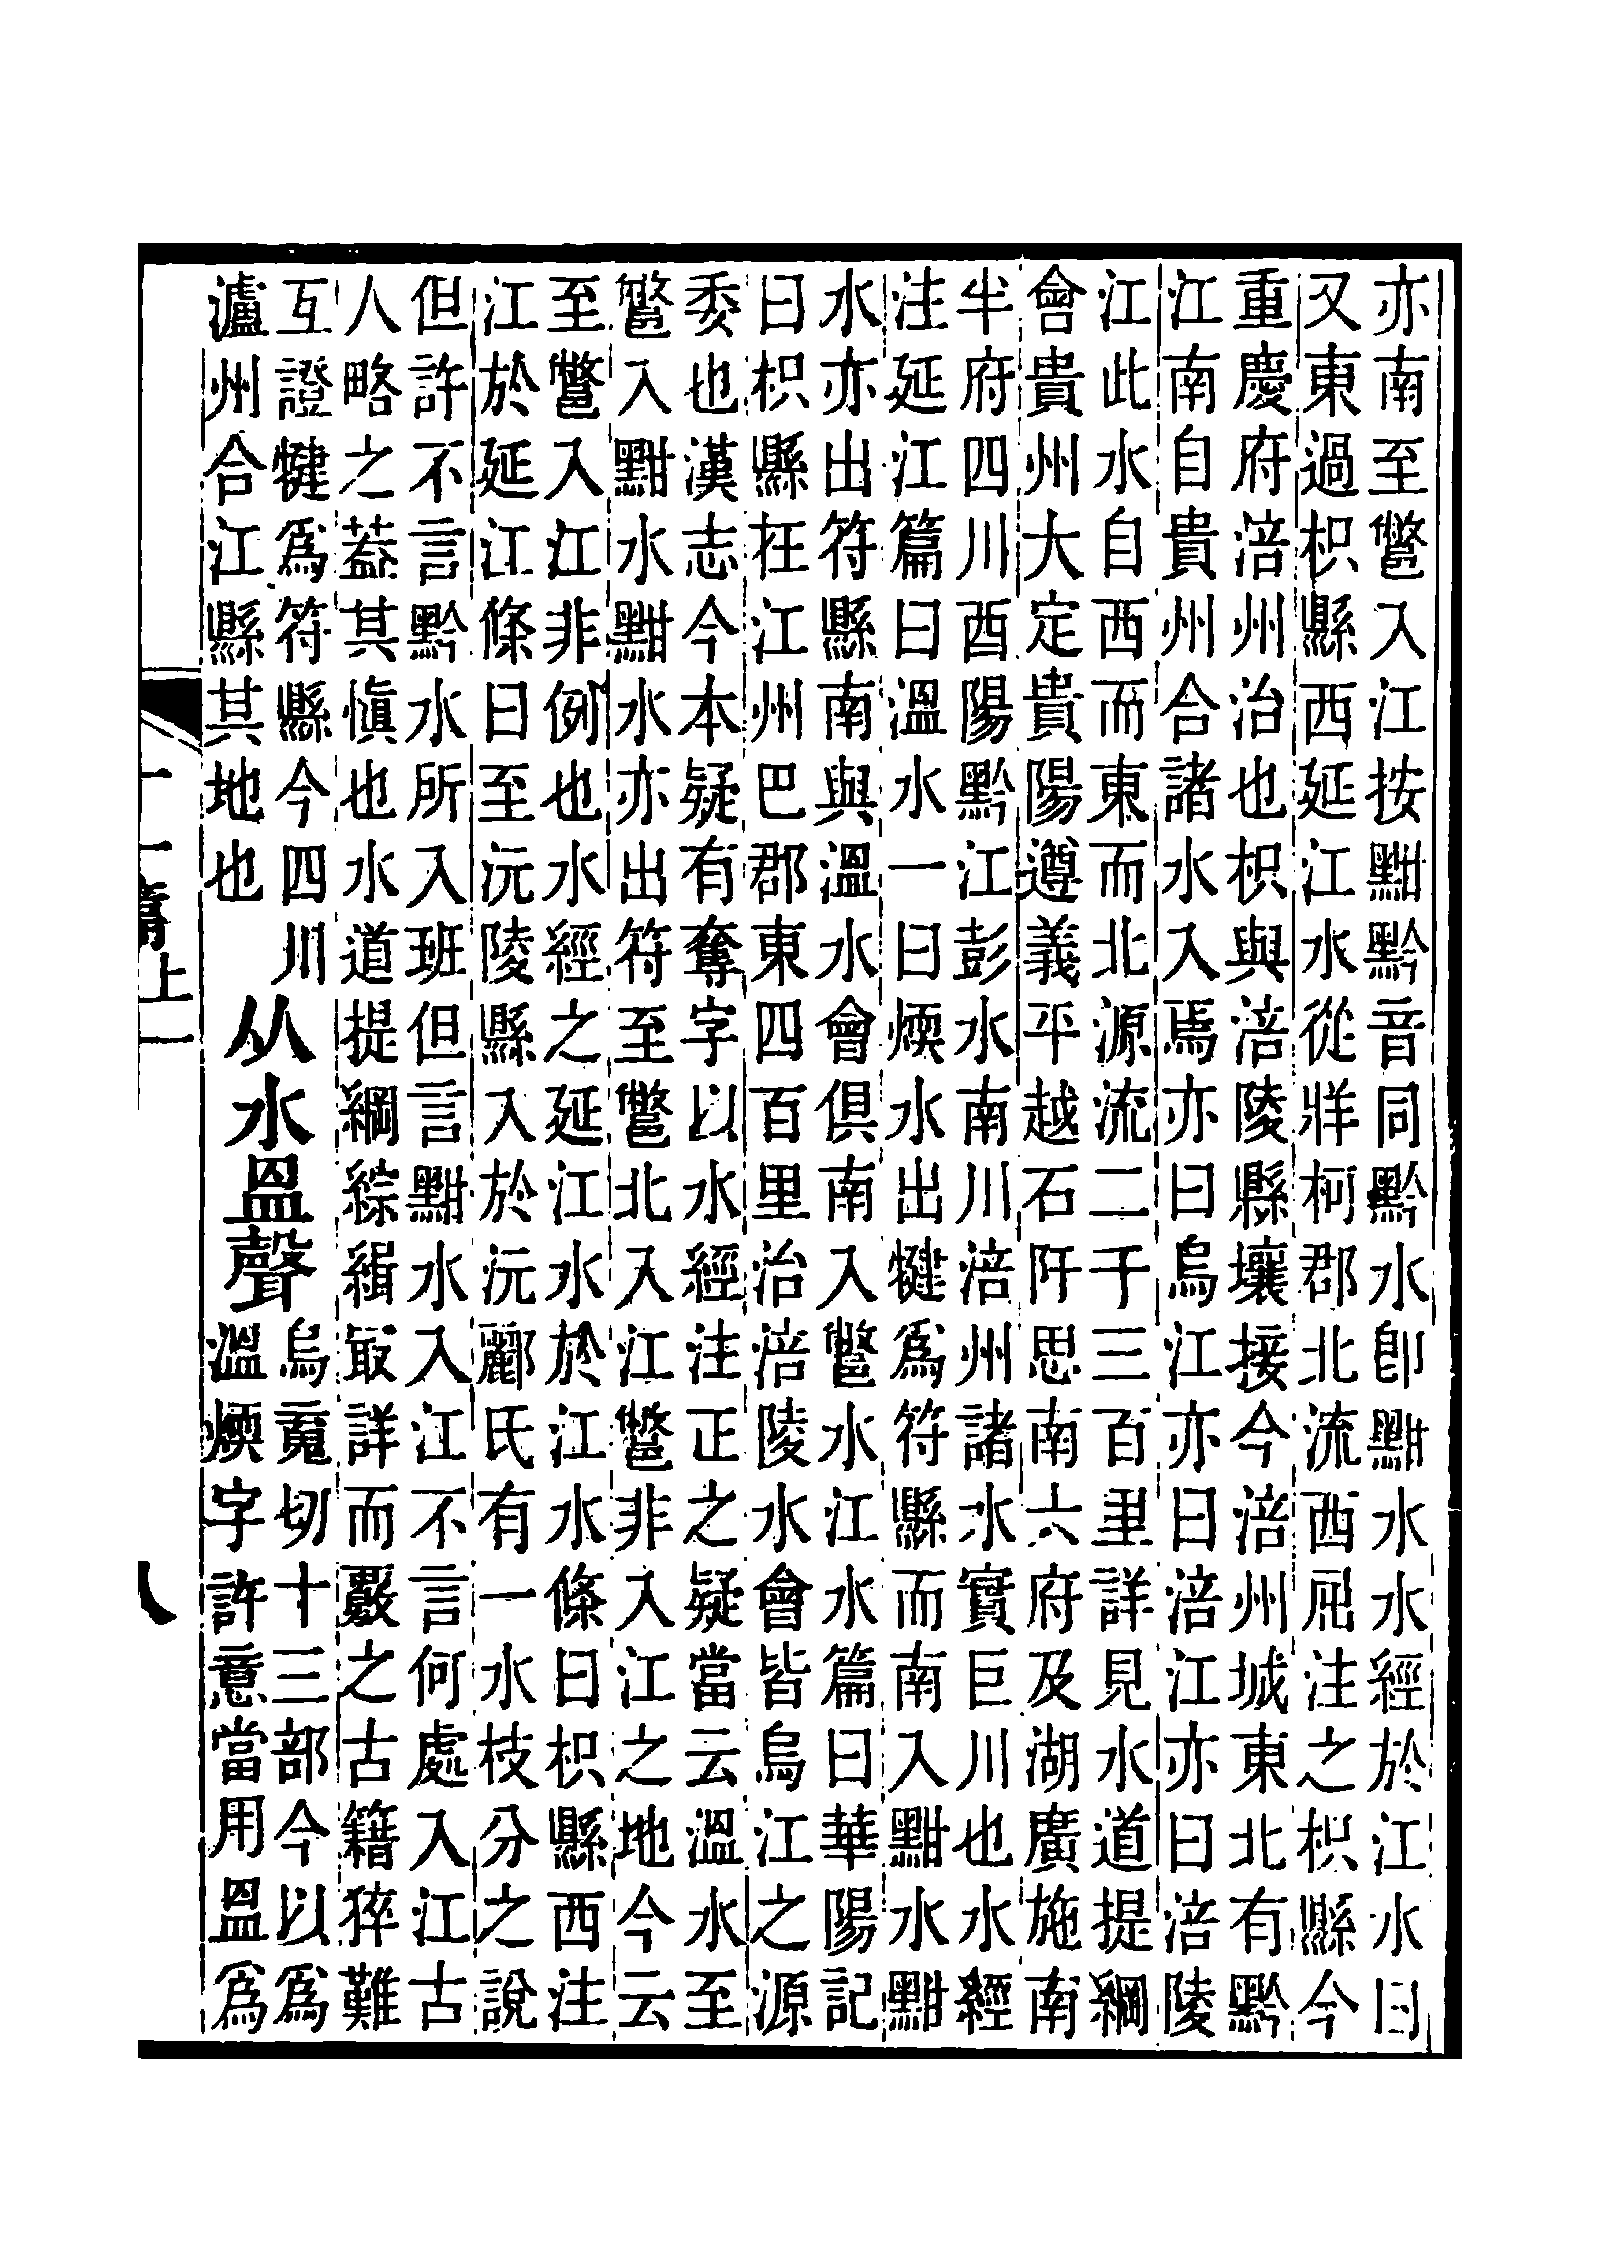 亦南至鄨入江按黚黔音同黔水卽黚水水經於江水曰
又東過枳縣西延江水從牂柯郡北流西屈注之枳縣今
重慶府涪州治也枳與涪陵縣壤接今涪州城東北有黔
江南自貴州合諸水入焉亦曰烏江亦曰涪江亦曰涪陵
江此水自西而東而北源流二千三百里詳見水道提綱
會貴州大定貴陽遵義平越石阡思南六府及湖廣施南
半府四川酉陽黔江彭水南川涪州諸水實巨川也水經
注延江篇曰溫水一曰煗水出犍爲符縣而南入黚水黚
水亦出符縣南與溫水會俱南入鄨水江水篇曰華陽記
曰枳縣在江州巴郡東四百里治涪陵水會皆烏江之源
委也漢志今本疑有奪字以水經注正之疑當云溫水至
鄨入黚水黚水亦出符至鄨北入江鄨非入江之地今云
至鄨入江非例也水經之延江水於江水條曰枳縣西注
江於延江條曰至沅陵縣入於沅酈氏有一水枝分之說
但許不言黔水所入班但言黚水入江不言何處入江古
人略之葢其愼也水道提綱綜緝㝡詳而覈之古籍猝難
互證犍爲符縣今四川
瀘州合江縣其地也
从水𥁕聲
烏䰟切十三部今以爲
溫煗字許意當用𥁕爲
十一篇上一